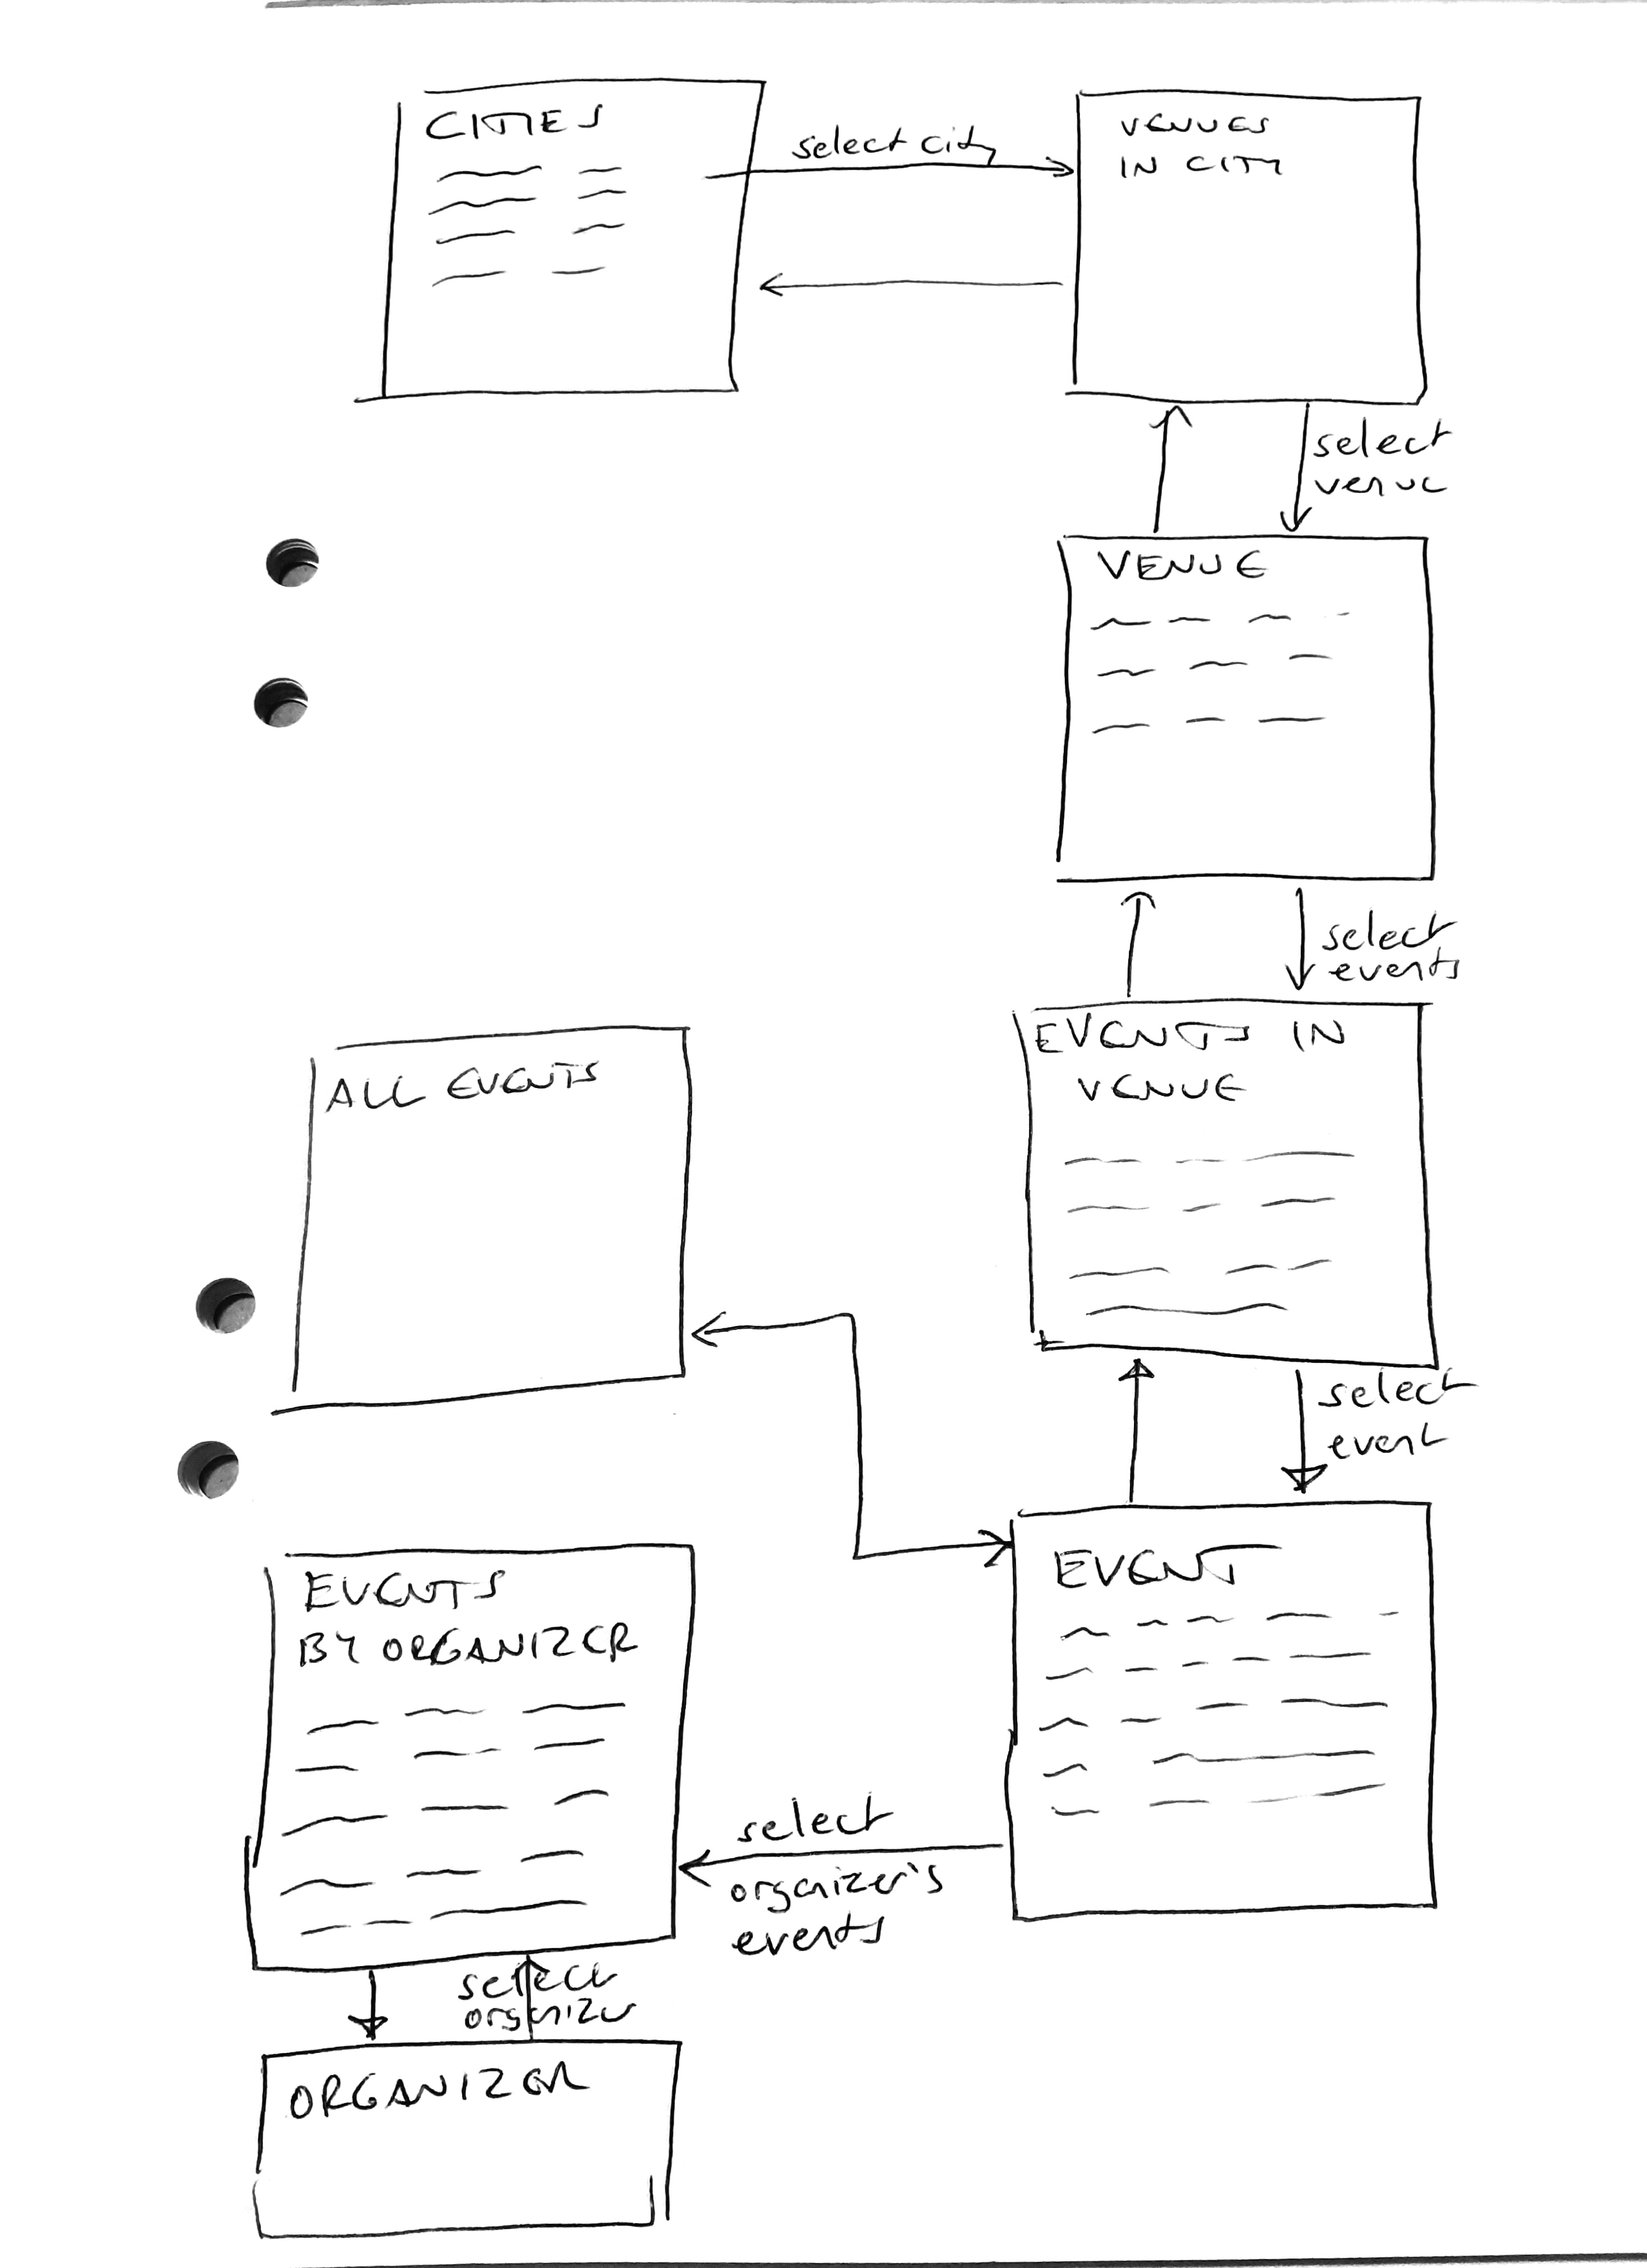 CITIES
select city
VENUES
IN CITY
select
venue
VENUE
select
events
EVENTS IN
VENUE
ALL EVENTS
select
event
EVENT
EVENTS
BY ORGANIZER
select
organizer's
events
select
organizer
ORGANIZER